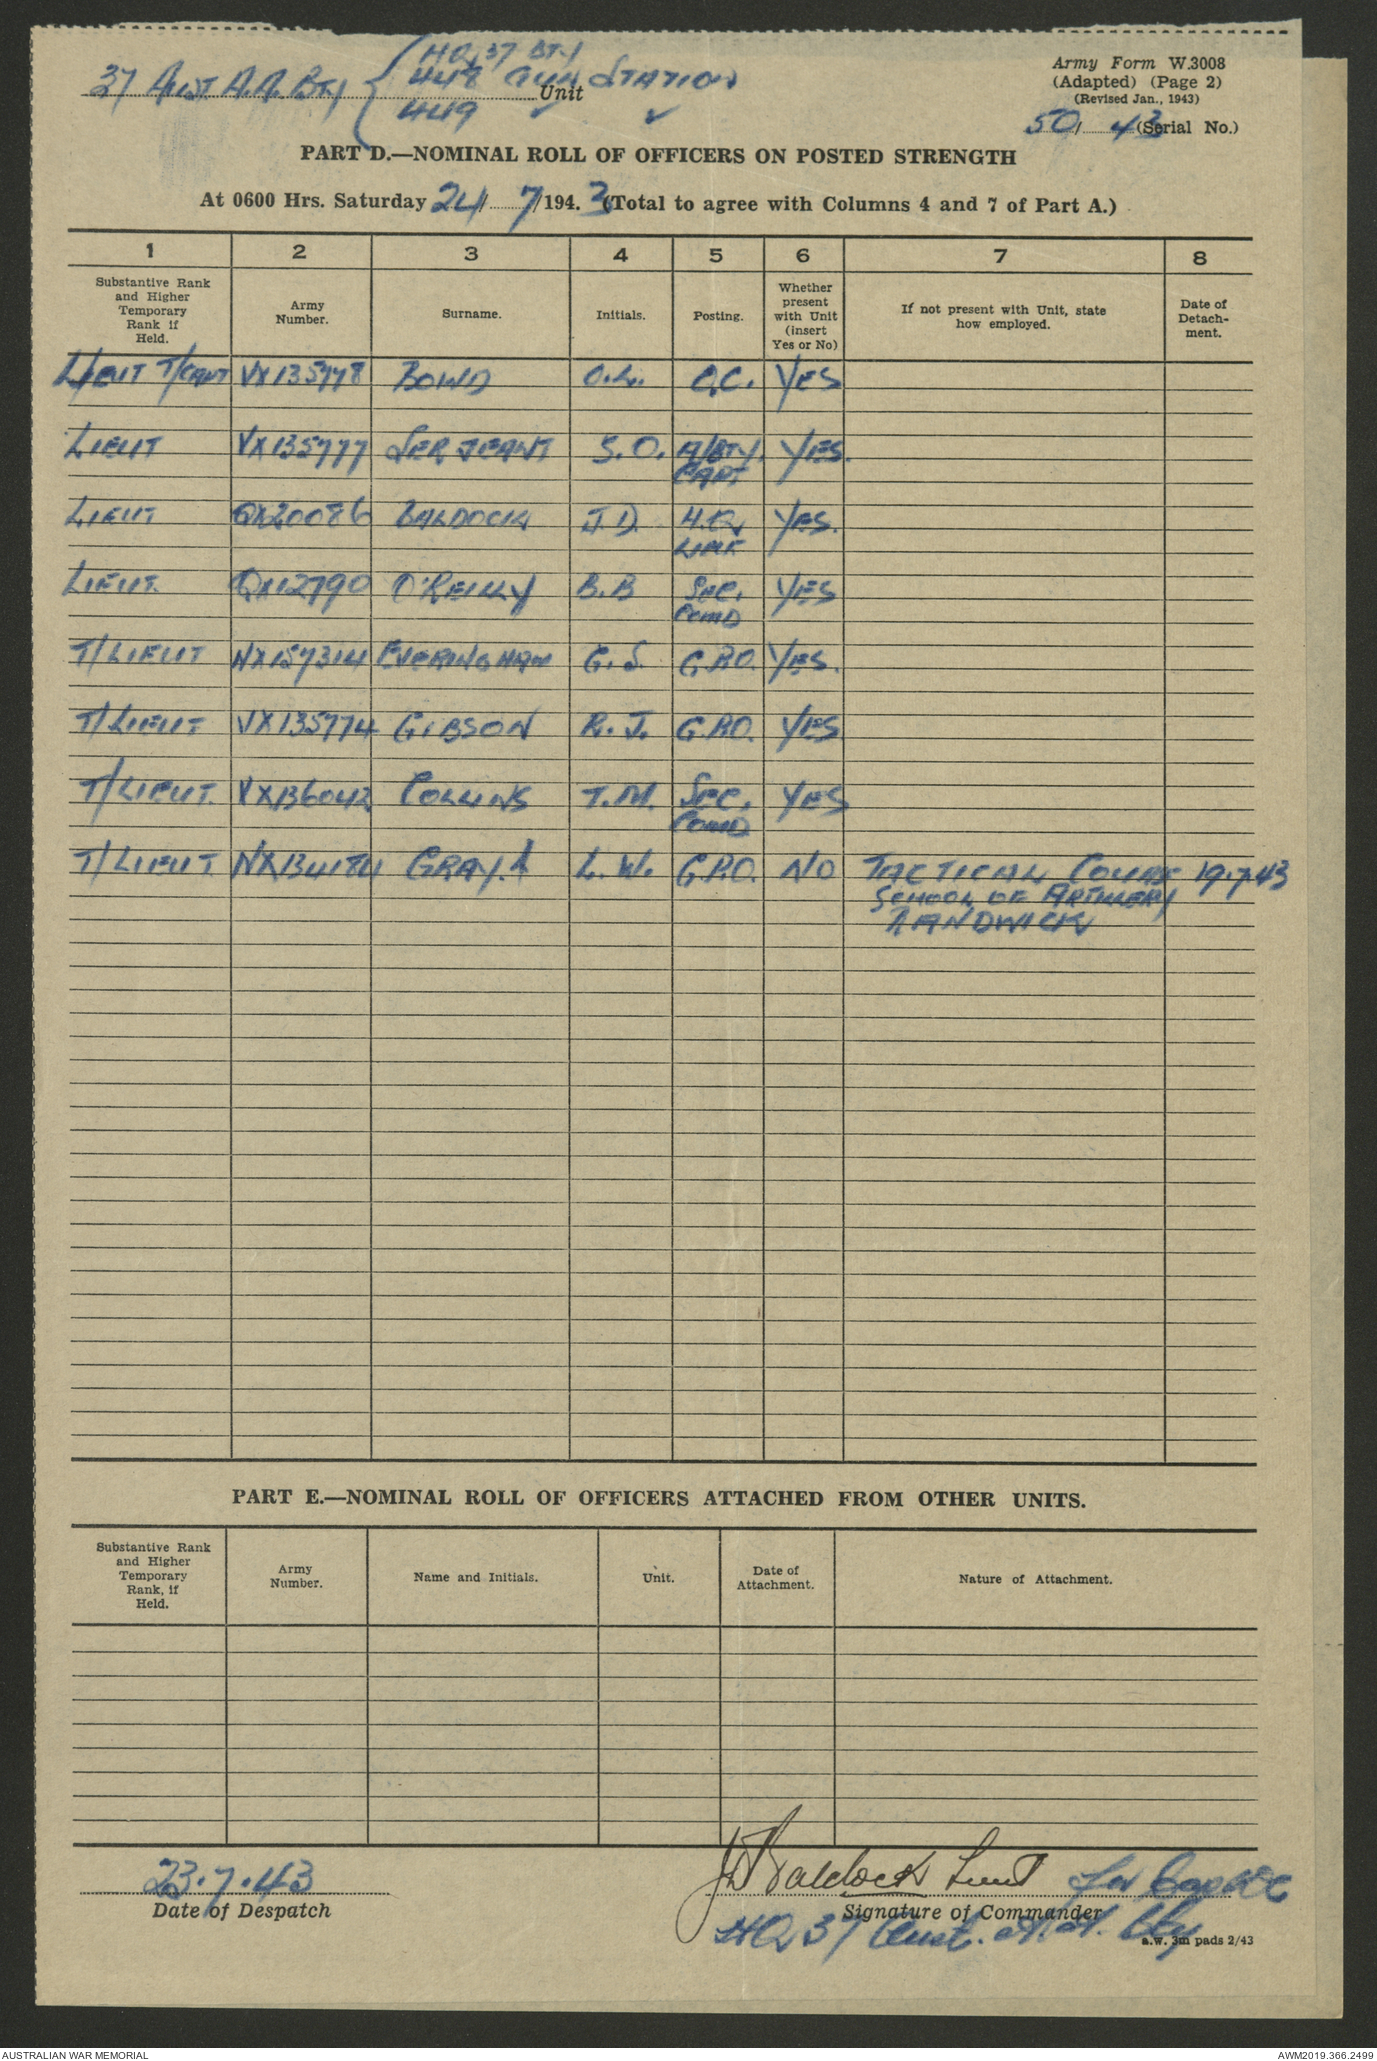 37 AUST A.A. BTY { HQ 37 BTY
448 GUN STATION
449
Unit
Army Form W.3008
(Adapted) (Page 2)
(Revised Jan., 1943)
50/43 (Serial No.)
PART D.—NOMINAL ROLL OF OFFICERS ON POSTED STRENGTH
At 0600 Hrs. Saturday 24/7/1943 (Total to agree with Columns 4 and 7 of Part A.)
1 2 3 4 5 6 7 8
Substantive Rank and Higher Temporary Rank if Held. Army Number. Surname. Initials. Posting. Whether present with Unit (insert Yes or No) If not present with Unit, state how employed. Date of Detach-ment.
LIEUT T/CAPT VX135778 BOWD O.L. O.C. YES
LIEUT VX135777 SERJEANT S.O. A/BTY. CAPT YES.
LIEUT QX20086 BALDOCK J.D. H.Q. YES.
LIEUT. QX12790 O'REILLY B.B SEC. COMD YES
T/LIEUT NX157314 EVERINGHAM G.S. G.P.O. YES.
T/LIEUT VX135774 GIBSON R.J. G.P.O. YES
T/LIEUT. VX136042 COLLINS T.M. SEC. COMD YES
T/LIEUT NX134184 GRAY. L.W. G.P.O. NO TACTICAL COURSE 19.7.43
SCHOOL OF ARTILLERY
RANDWICK
PART E.—NOMINAL ROLL OF OFFICERS ATTACHED FROM OTHER UNITS.
Substantive Rank and Higher Temporary Rank, if Held. Army Number. Name and Initials. Unit. Date of Attachment. Nature of Attachment.
23.7.43 JD Baldock Lieut for Capt OC
Date of Despatch Signature of Commander
HQ 37 Aust. A.A. Bty
a.w. 3m pads 2/43
AUSTRALIAN WAR MEMORIAL AWM2019.366.2499